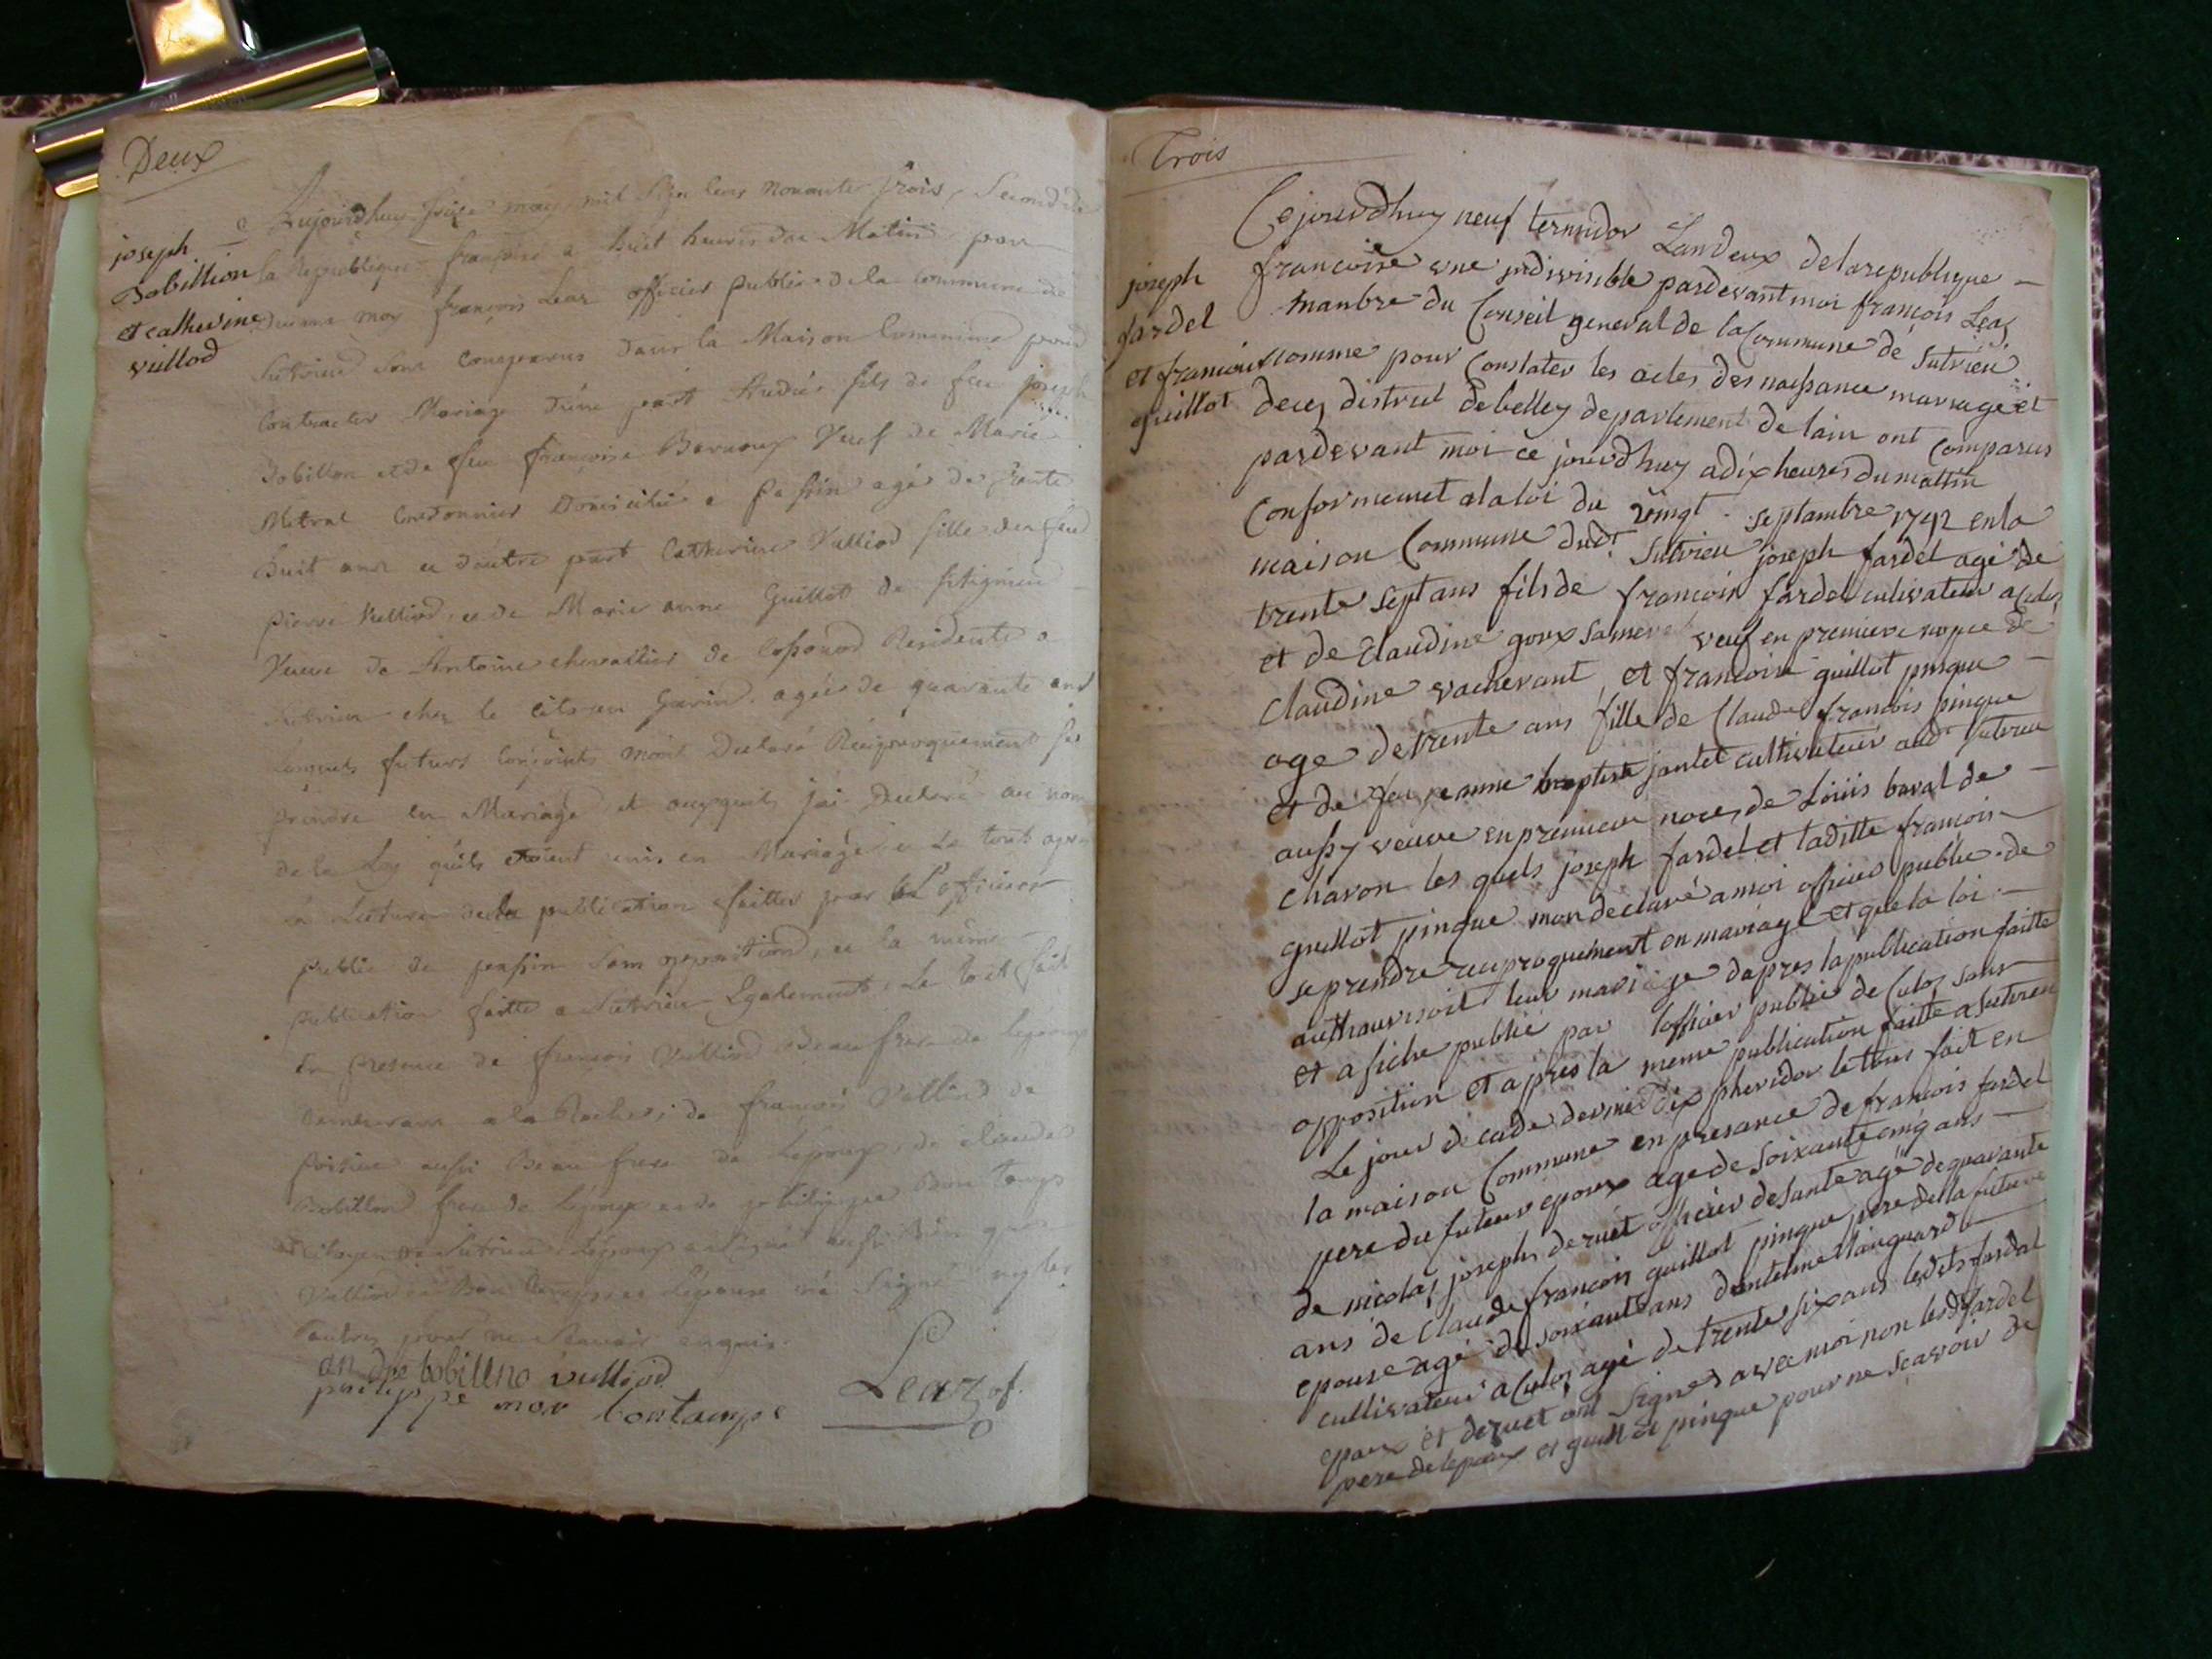 Deux
joseph
Bobillion
et catherine
vulliod
Aujourdhuy seize may mil sept cens nonante trois, Second de
la Republique francoise a huit heures du Matin par
Devant moy francois Lear officier Public de la commune de
Sutrieu sont comparus dans la Maison Commune pour
Contracter Mariage d'une part Andrée fils de feu joseph
Bobillon et de feu francoise Veuf de Marie
Mitral Cordonnier Domicilié a passin agé de trente
huit ans et d'autre part Catherine Vulliod fille de feu
pierre Vulliod, et de Marie anne Guillot de
Veuve de Antoine chevallier de Residente a
Sutrieu chez le Citoyen agée de quarante ans
Lesquels futurs Conjoints mont Declaré Reciproquement se
prendre en Mariage et auxquels jai Declaré au nom
de la Loy quils etoient unis en Mariage et Le tout apres
la Lecture de la publication faitte par L'officier
public de passin sans opposition, et la même
publication faitte a Sutrieu Egalement. Le tout fait
en presence de francois Vulliod Beau frere de Lepoux
Demeurant a la de francois Vulliod de
aussi Beau frere de Lepoux, de claude
Bobillon frere de Lépoux et de philippe Bon tamps
Citoyen de Sutrieu. Lépoux a signé aussi Bien que
Vulliod et Bon tamps et Lépouse n'a Signé ny les
autres pour ne Scavoir enquis.
an dre bobillno vulliod
philippe mor bontamps
Lear of.
Trois
joseph
fardel
et francoise
guillot
Cejourdhuy neuf termidor Landeux de la republique
francoise une jndivisible pardevant moi françois Lear
manbre du Conseil general de la Commune de Sutrieu
nomme pour Constater les actes des naissance mariage et
deces district de belley departement de lain ont Comparus
pardevant moi ce jourdhuy a dix heures du mattin
Conformemet a la loi du vingt septambre 1792 en la
maison Commune dudt Sutrieu joseph fardel agé de
trente sept ans fils de francois fardel cultivateur a Culoz
et de claudine goux veuf en premiere nopce de
Claudine vachevant, et francoise guillot pingue
age de trente ans fille de Claude francois pingue
et de feu jeanne baptiste jantet cultivateur audt Sutrieu
aussy veuve en premiere noces de Louis baval de
chavon les quels joseph fardel et laditte francois
guillot pingue mon declaré a moi officier public de
se prendre reciproquement en mariage et que la loi
authaurisoit leur mariage dapres la publication faitte
et a fiche publié par lofficier public de Culoz sans
opposition et apres la meme publication faitte a Sutrieu
Le jour decade dernier dix thermidor le tout fait en
la maison Commune en presance de francois fardel
pere du futeur epoux age de soixante cinq ans
de nicolas joseph deruet officier de sante agé de quarante
ans de Claude francois guillot pingue pere de la future
epouse agé de soixante ans danteme Maugnard
cultivateur a Culoz agé de trente six ans lesdts fardel
epoux et deruet ont Signes avec moi non lesdt fardel
pere de lepoux et guillot pingue pour ne Scavoir de